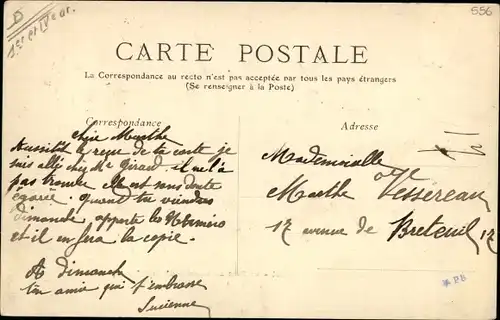 556
D
1er et IVe ar.
CARTE POSTALE
La Correspondance au recto n'est pas acceptée par tous les pays étrangers
(Se renseigner à la Poste)
Correspondance
Adresse
Chère Marthe
Aussitôt le reçue de ta carte je
suis allé chez Mr Girard il ne l'a
pas trouvée elle est sans doute
égarée. Quand tu viendras
dimanche, apporte les
et il en fera la copie.
A dimanche
ton amie qui t'embrasse
Lucienne
Mademoiselle
Marthe Vessereau
17 avenue de Breteuil 17